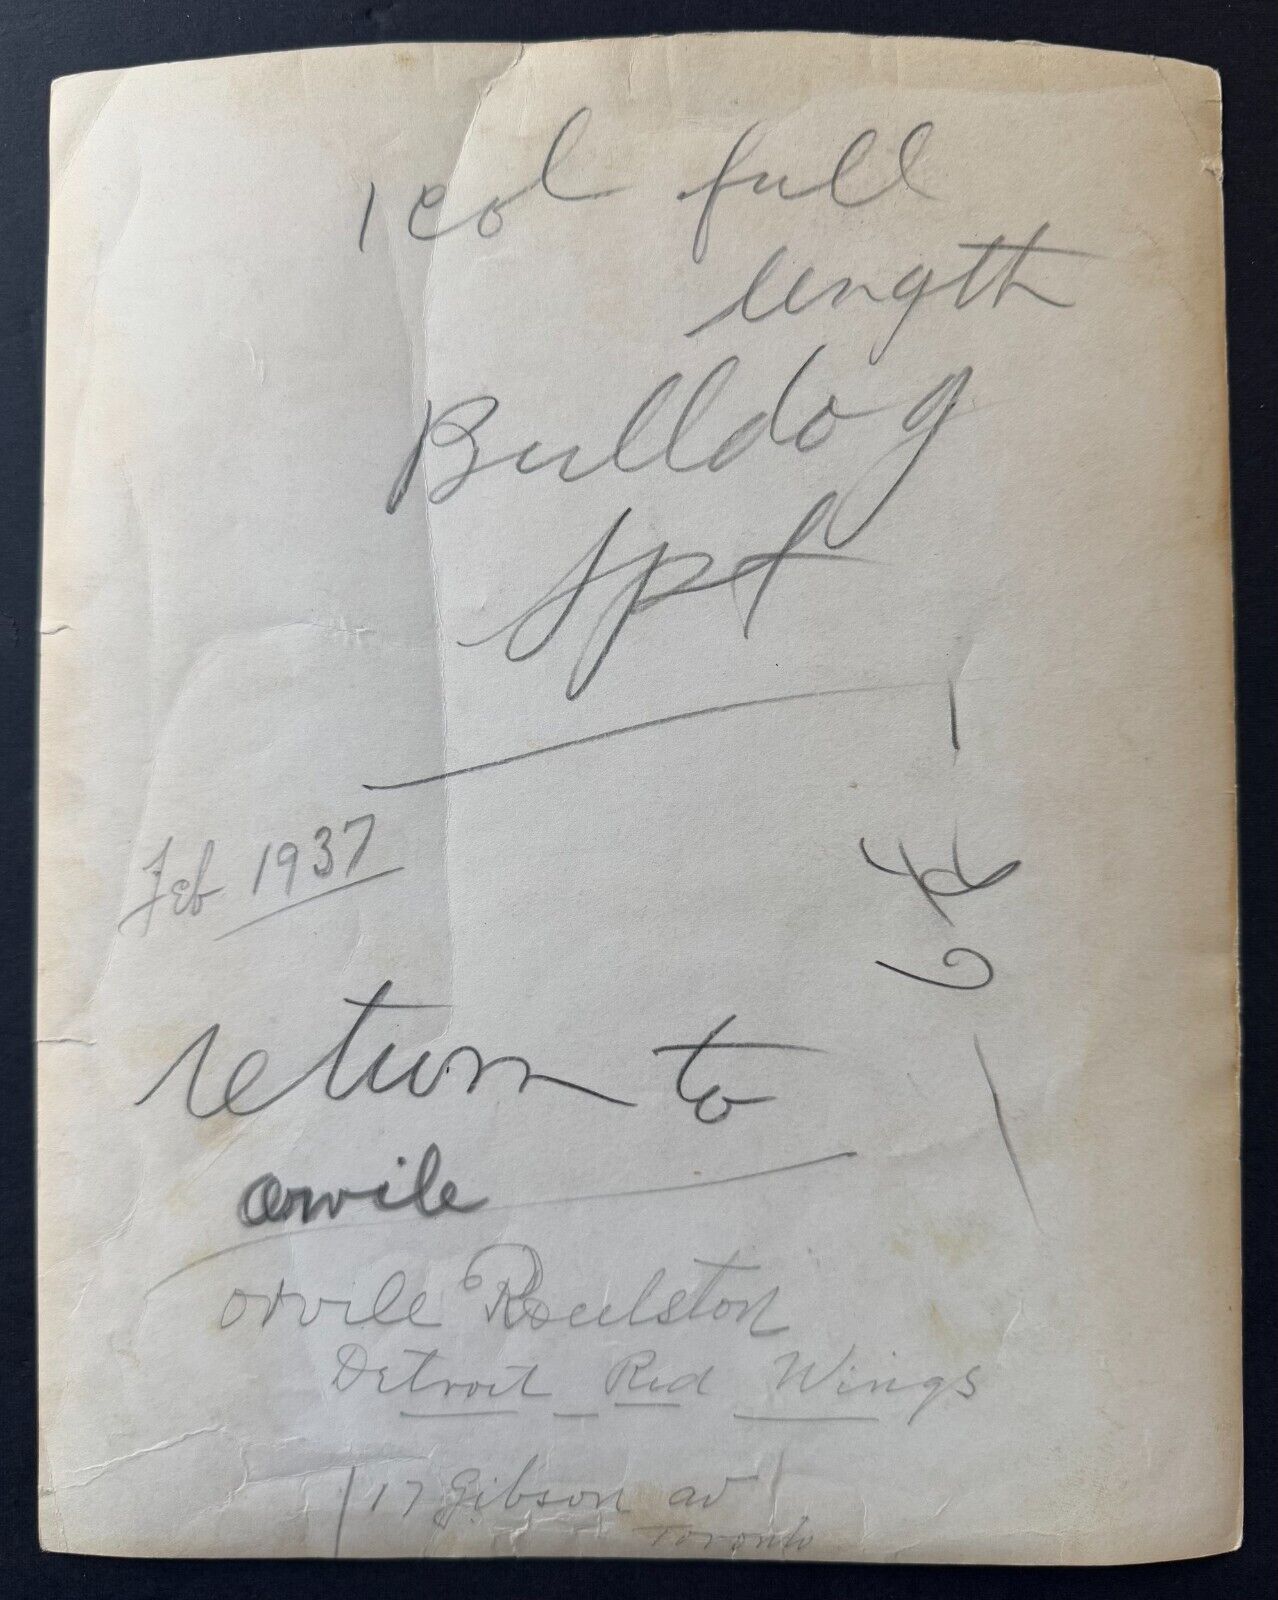 1 col full
length
Bulldog
spt
Feb 1937
return to
orvile
orvile Roulston
Detroit Red Wings
17 Gibson av
Toronto